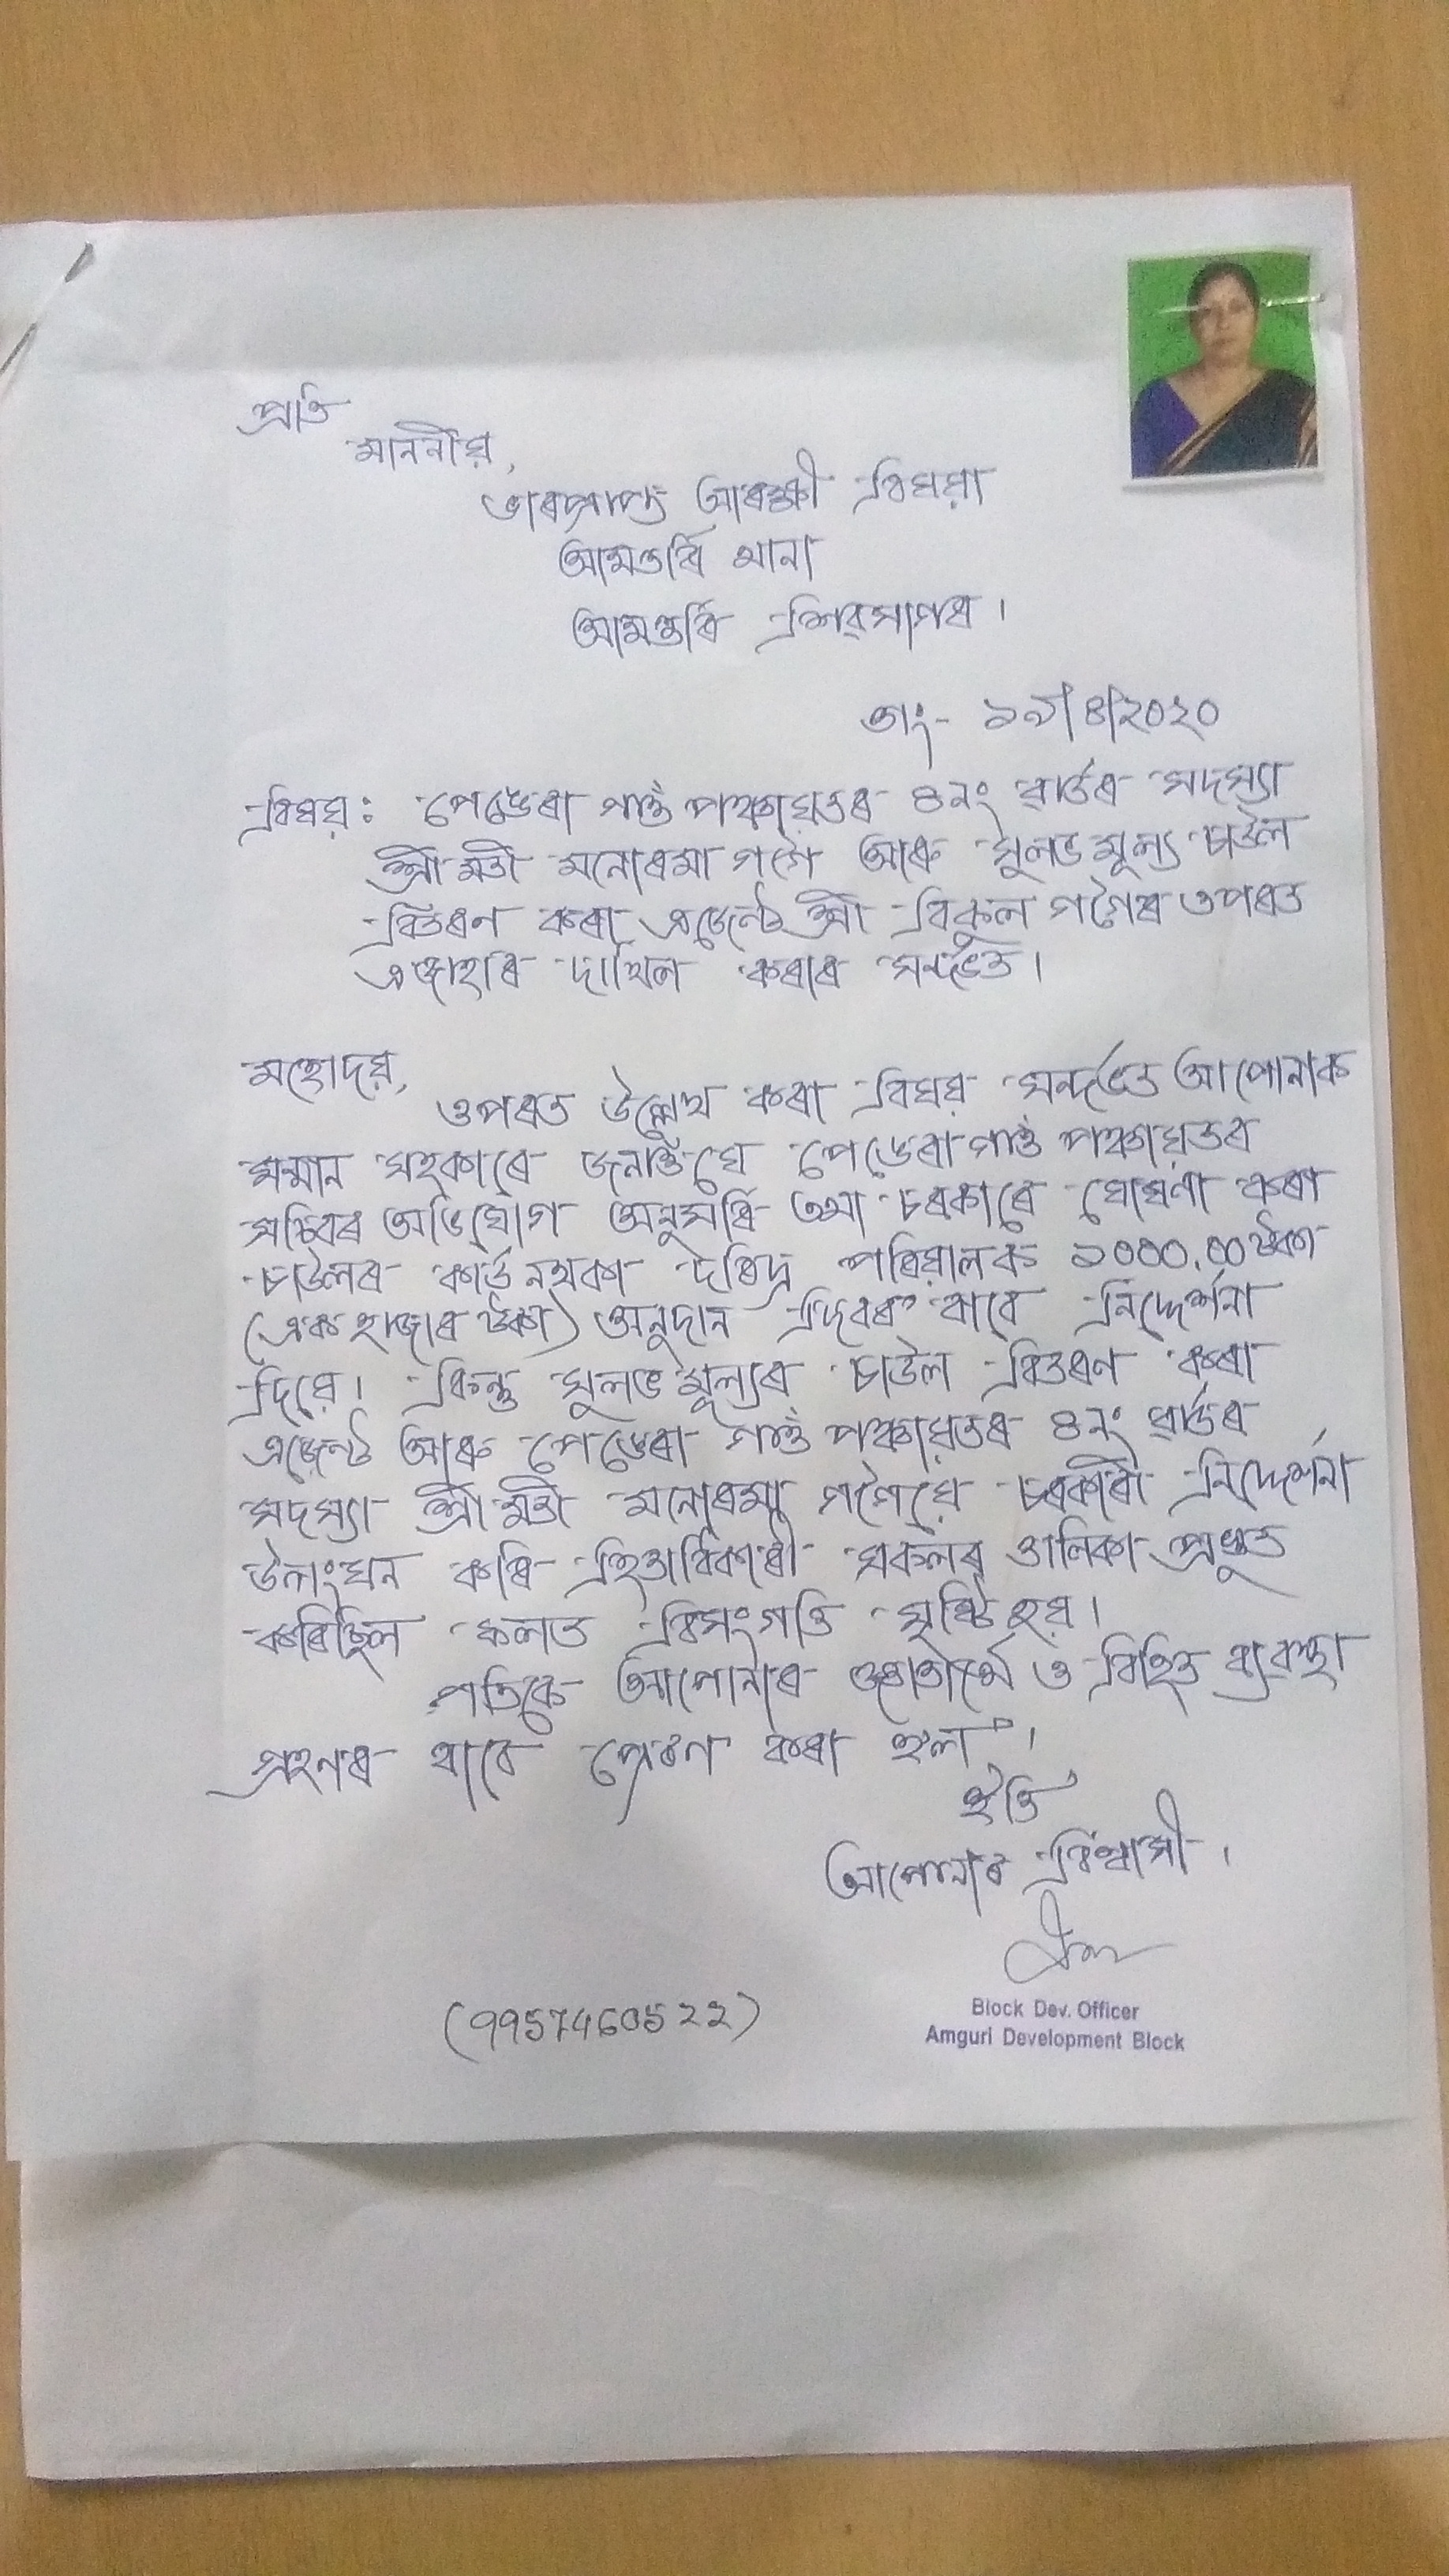 প্ৰতি
মাননীয়,
ভাৰপ্ৰাপ্ত আৰক্ষী বিষয়া
আমগুৰি থানা
আমগুৰি শিৱসাগৰ।
তাং- ১৯/৪/২০২০
বিষয়: পেঙেৰা গাওঁ পঞ্চায়তৰ ৪নং ৱাৰ্ডৰ সদস্যা
শ্ৰীমতী মনোৰমা গগৈ আৰু সুলভ মূল্য চাউল
বিতৰণ কৰা এজেন্ট শ্ৰী বিকুল গগৈৰ ওপৰত
এজাহাৰ দাখিল কৰাৰ সন্দৰ্ভত।
মহোদয়,
ওপৰত উল্লেখ কৰা বিষয় সন্দৰ্ভত আপোনাক
সন্মান সহকাৰে জনাওঁ যে পেঙেৰা গাওঁ পঞ্চায়তৰ
সচিবৰ অভিযোগ অনুসৰি চৰকাৰে ঘোষণা কৰা
চাউলৰ কাৰ্ড নথকা দৰিদ্ৰ পৰিয়ালক ১০০০.০০ টকা
(এক হাজাৰ টকা) অনুদান দিবৰ বাবে নিৰ্দ্দেশনা
দিয়ে। কিন্তু সুলভ মূল্যৰ চাউল বিতৰণ কৰা
এজেন্ট আৰু পেঙেৰা গাওঁ পঞ্চায়তৰ ৪নং ৱাৰ্ডৰ
সদস্যা শ্ৰীমতী মনোৰমা গগৈয়ে চৰকাৰী নিৰ্দ্দেশনা
উলংঘন কৰি হিতাধিকাৰী সকলৰ তালিকা প্ৰস্তুত
কৰিছিল ফলত বিসংগতি সৃষ্টি হয়।
গতিকে আপোনাৰ জ্ঞাতাৰ্থে ও বিহিত ব্যৱস্থা
গ্ৰহণৰ বাবে প্ৰেৰণ কৰা হ'ল।
ইতি
আপোনাৰ বিশ্বাসী।
Block Dev. Officer
Amguri Development Block
(9957460522)